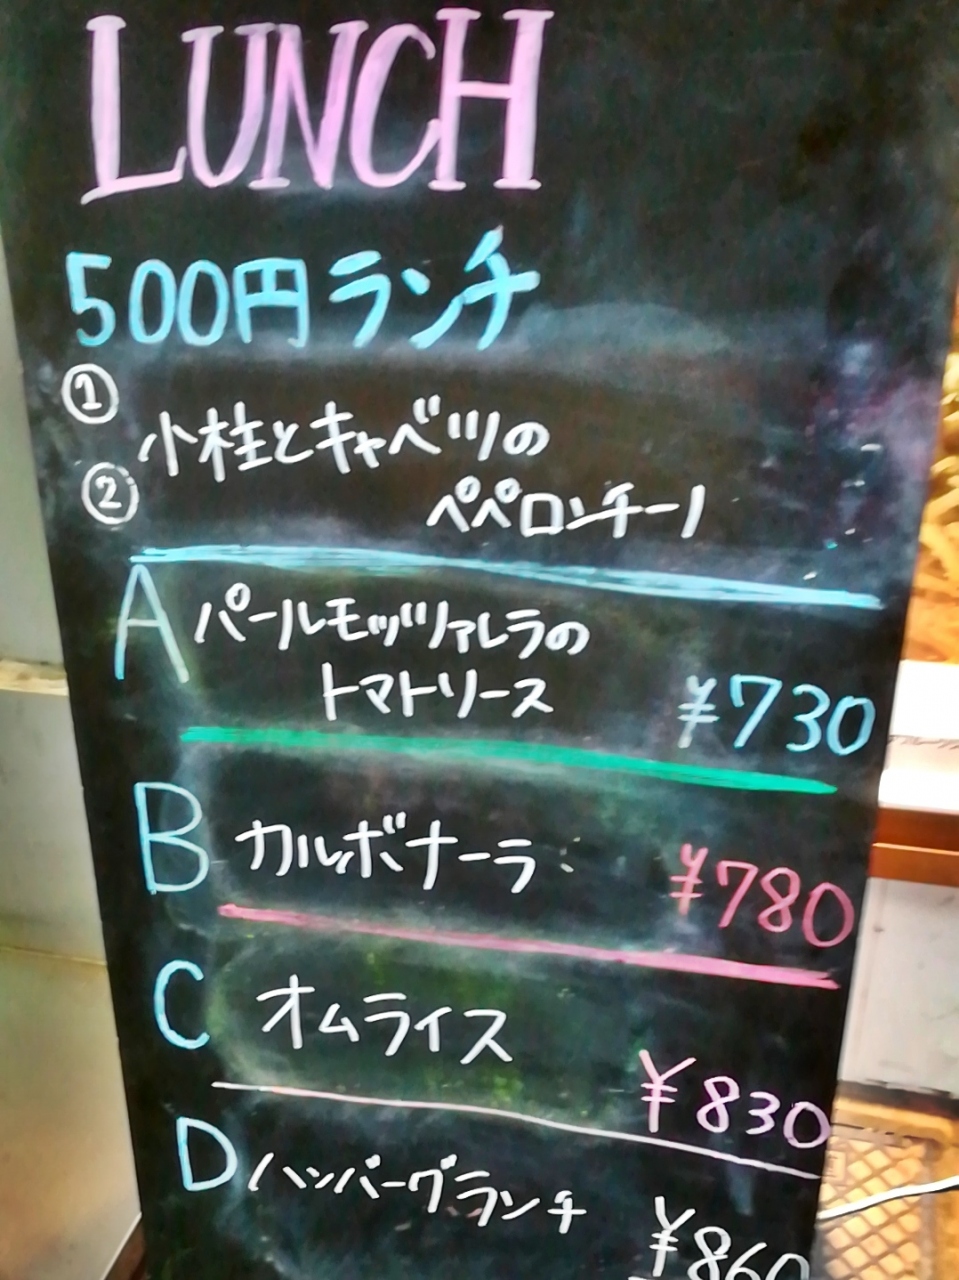 LUNCH
500円ランチ
①
小柱とキャベツの
②
ペペロンチーノ
A パールモッツァレラの
トマトソース ¥730
B カルボナーラ ¥780
C オムライス
¥830
D ハンバーグランチ
¥860